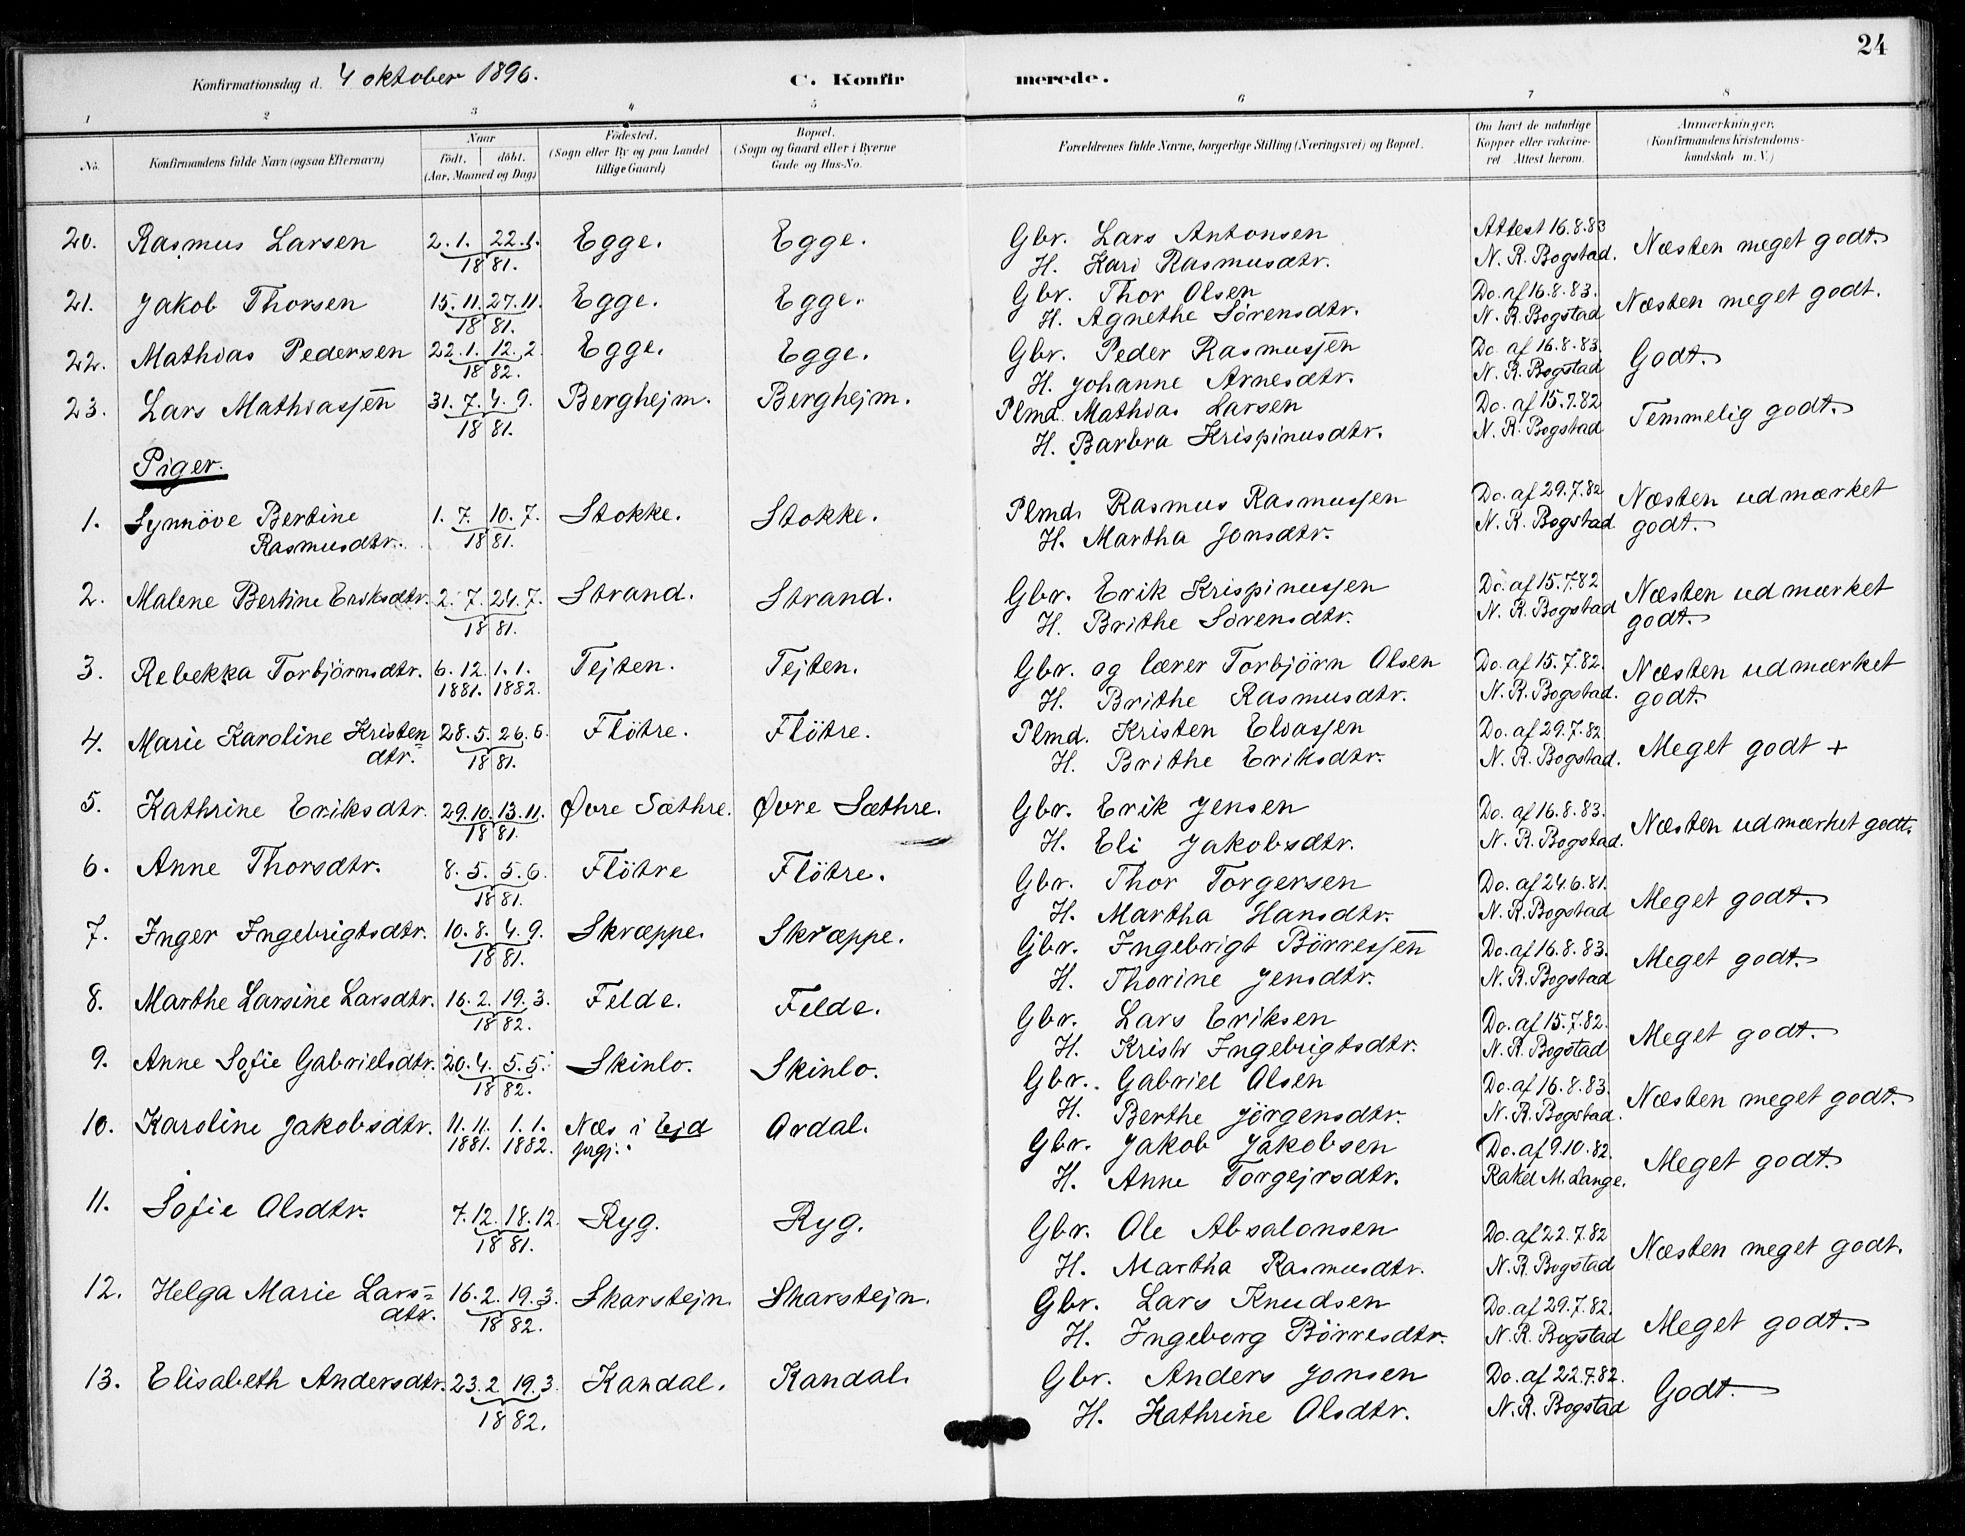 24
Konfirmationsdag d. 4 oktober 1896. C. Konfirmerede.
1 2 3 4 5 6 7 8
No. Konfirmandens fulde Navn (ogsaa Efternavn) Naar Födt. döbt. (Aar, Maaned og Dag) Födested. (Sogn eller By og paa Landet tillige Gaard) Bopæl. (Sogn og Gaard eller i Byerne Gade og Hus-No. Forældrenes fulde Navne, borgerlige Stilling (Næringsvei) og Bopæl. Om havt de naturlige Kopper eller vakcineret Attest herom. Anmærkninger. (Konfirmandens Kristendomskundskab m. V.)
20. Rasmus Larsen 2.1. 22.1. Egge. Egge. Gbr. Lars Antonsen Attest 16.8.83 Næsten meget godt.
1881. H. Kari Rasmusdtr. N. R. Bogstad.
21. Jakob Thorsen 15.11. 27.11. Egge. Egge. Gbr. Thor Olsen Do. af 16.8.83. Næsten meget godt.
1881. H. Agnethe Sörensdtr. N. R. Bogstad
22. Mathias Pedersen 22.1. 12.2 Egge. Egge. Gbr. Peder Rasmussen Do af 16.8.83. Godt.
1882. H. Johanne Arnesdtr. N. R. Bogstad
23. Lars Mathiassen 31.7. 4.9. Berghejm. Berghejm. Plmd. Mathias Larsen Do. af 15.7.82 Temmelig godt.
1881. H. Barbra Krispinusdtr. N. R. Bogstad
Piger.
1. Synnöve Bertine 1.7. 10.7. Stokke. Stokke. Plmd. Rasmus Rasmussen Do. af 29.7.82 Næsten udmærket
Rasmusdtr. 1881. H. Martha Jonsdtr. N. R. Bogstad godt.
2. Malene Bertine Eriksdtr. 2.7. 24.7. Strand. Strand. Gbr. Erik Krispinussen Do. af 15.7.82 Næsten udmærket
1881. H. Brithe Sörensdtr. N. R. Bogstad godt.
3. Rebekka Torbjörnsdtr. 6.12. 1.1. Tejten. Tejten. Gbr. og lærer Torbjörn Olsen Do. af 15.7.82. Næsten udmærket
1881. 1882. H. Brithe Rasmusdtr. N. R. Bogstad. godt.
4. Marie Karoline Kristen= 28.5. 26.6. Flötre. Flötre. Plmd. Kristen Eliassen Do. af 29.7.82. Meget godt +
dtr. 1881. H. Brithe Eriksdtr. N. R. Bogstad.
5. Kathrine Eriksdtr. 29.10. 13.11. Øvre Sæthre. Øvre Sæthre. Gbr. Erik Jensen Do. af 16.8.83. Næsten udmærket godt.
1881. H. Eli Jakobsdtr. N. R. Bogstad.
6. Anne Thorsdtr. 8.5. 5.6. Flötre Flötre. Gbr. Thor Torgersen Do. af 24.6.81. Meget godt.
1881. H. Martha Hansdtr. N. R. Bogstad
7. Inger Ingebrigtsdtr. 10.8. 4.9. Skræppe. Skræppe. Gbr. Ingebrigt Börressen Do. af 16.8.83. Meget godt.
1881. H. Thorine Jensdtr. N. R. Bogstad
8. Marthe Larsine Larsdtr. 16.2. 19.3. Felde. Felde. Gbr. Lars Eriksen Do. af 15.7.82. Meget godt.
1882. H. Kristi Ingebrigtsdtr. N. R. Bogstad
9. Anne Sofie Gabrielsdtr. 20.4. 5.5. Skinlo. Skinlo. Gbr. Gabriel Olsen Do. af 16.8.83. Næsten meget godt.
1882. H. Berthe Jörgensdtr. N. R. Bogstad.
10. Karoline Jakobsdtr. 11.11. 1.1. Næs i Ejd Ordal. Gbr. Jakob Jakobsen Do. af 9.10.82. Meget godt.
1881. 1882. prgj. H. Anne Torgejrsdtr. Rakel M. Lange.
11. Sofie Olsdtr. 7.12. 18.12. Ryg. Ryg. Gbr. Ole Absalonsen Do. af 22.7.82 Næsten meget godt.
1881. H. Martha Rasmusdtr. N. R. Bogstad
12. Helga Marie Lars= 16.2. 19.3. Skarstejn. Skarstejn. Gbr. Lars Knudsen Do. af 29.7.82. Meget godt.
dtr. 1882. H. Ingeborg Börresdtr. N. R. Bogstad
13. Elisabeth Andersdtr. 23.2 19.3. Kandal. Kandal. Gbr. Anders Jonsen Do. af 22.7.82. Godt.
1882. H. Kathrine Olsdtr. N. R. Bogstad